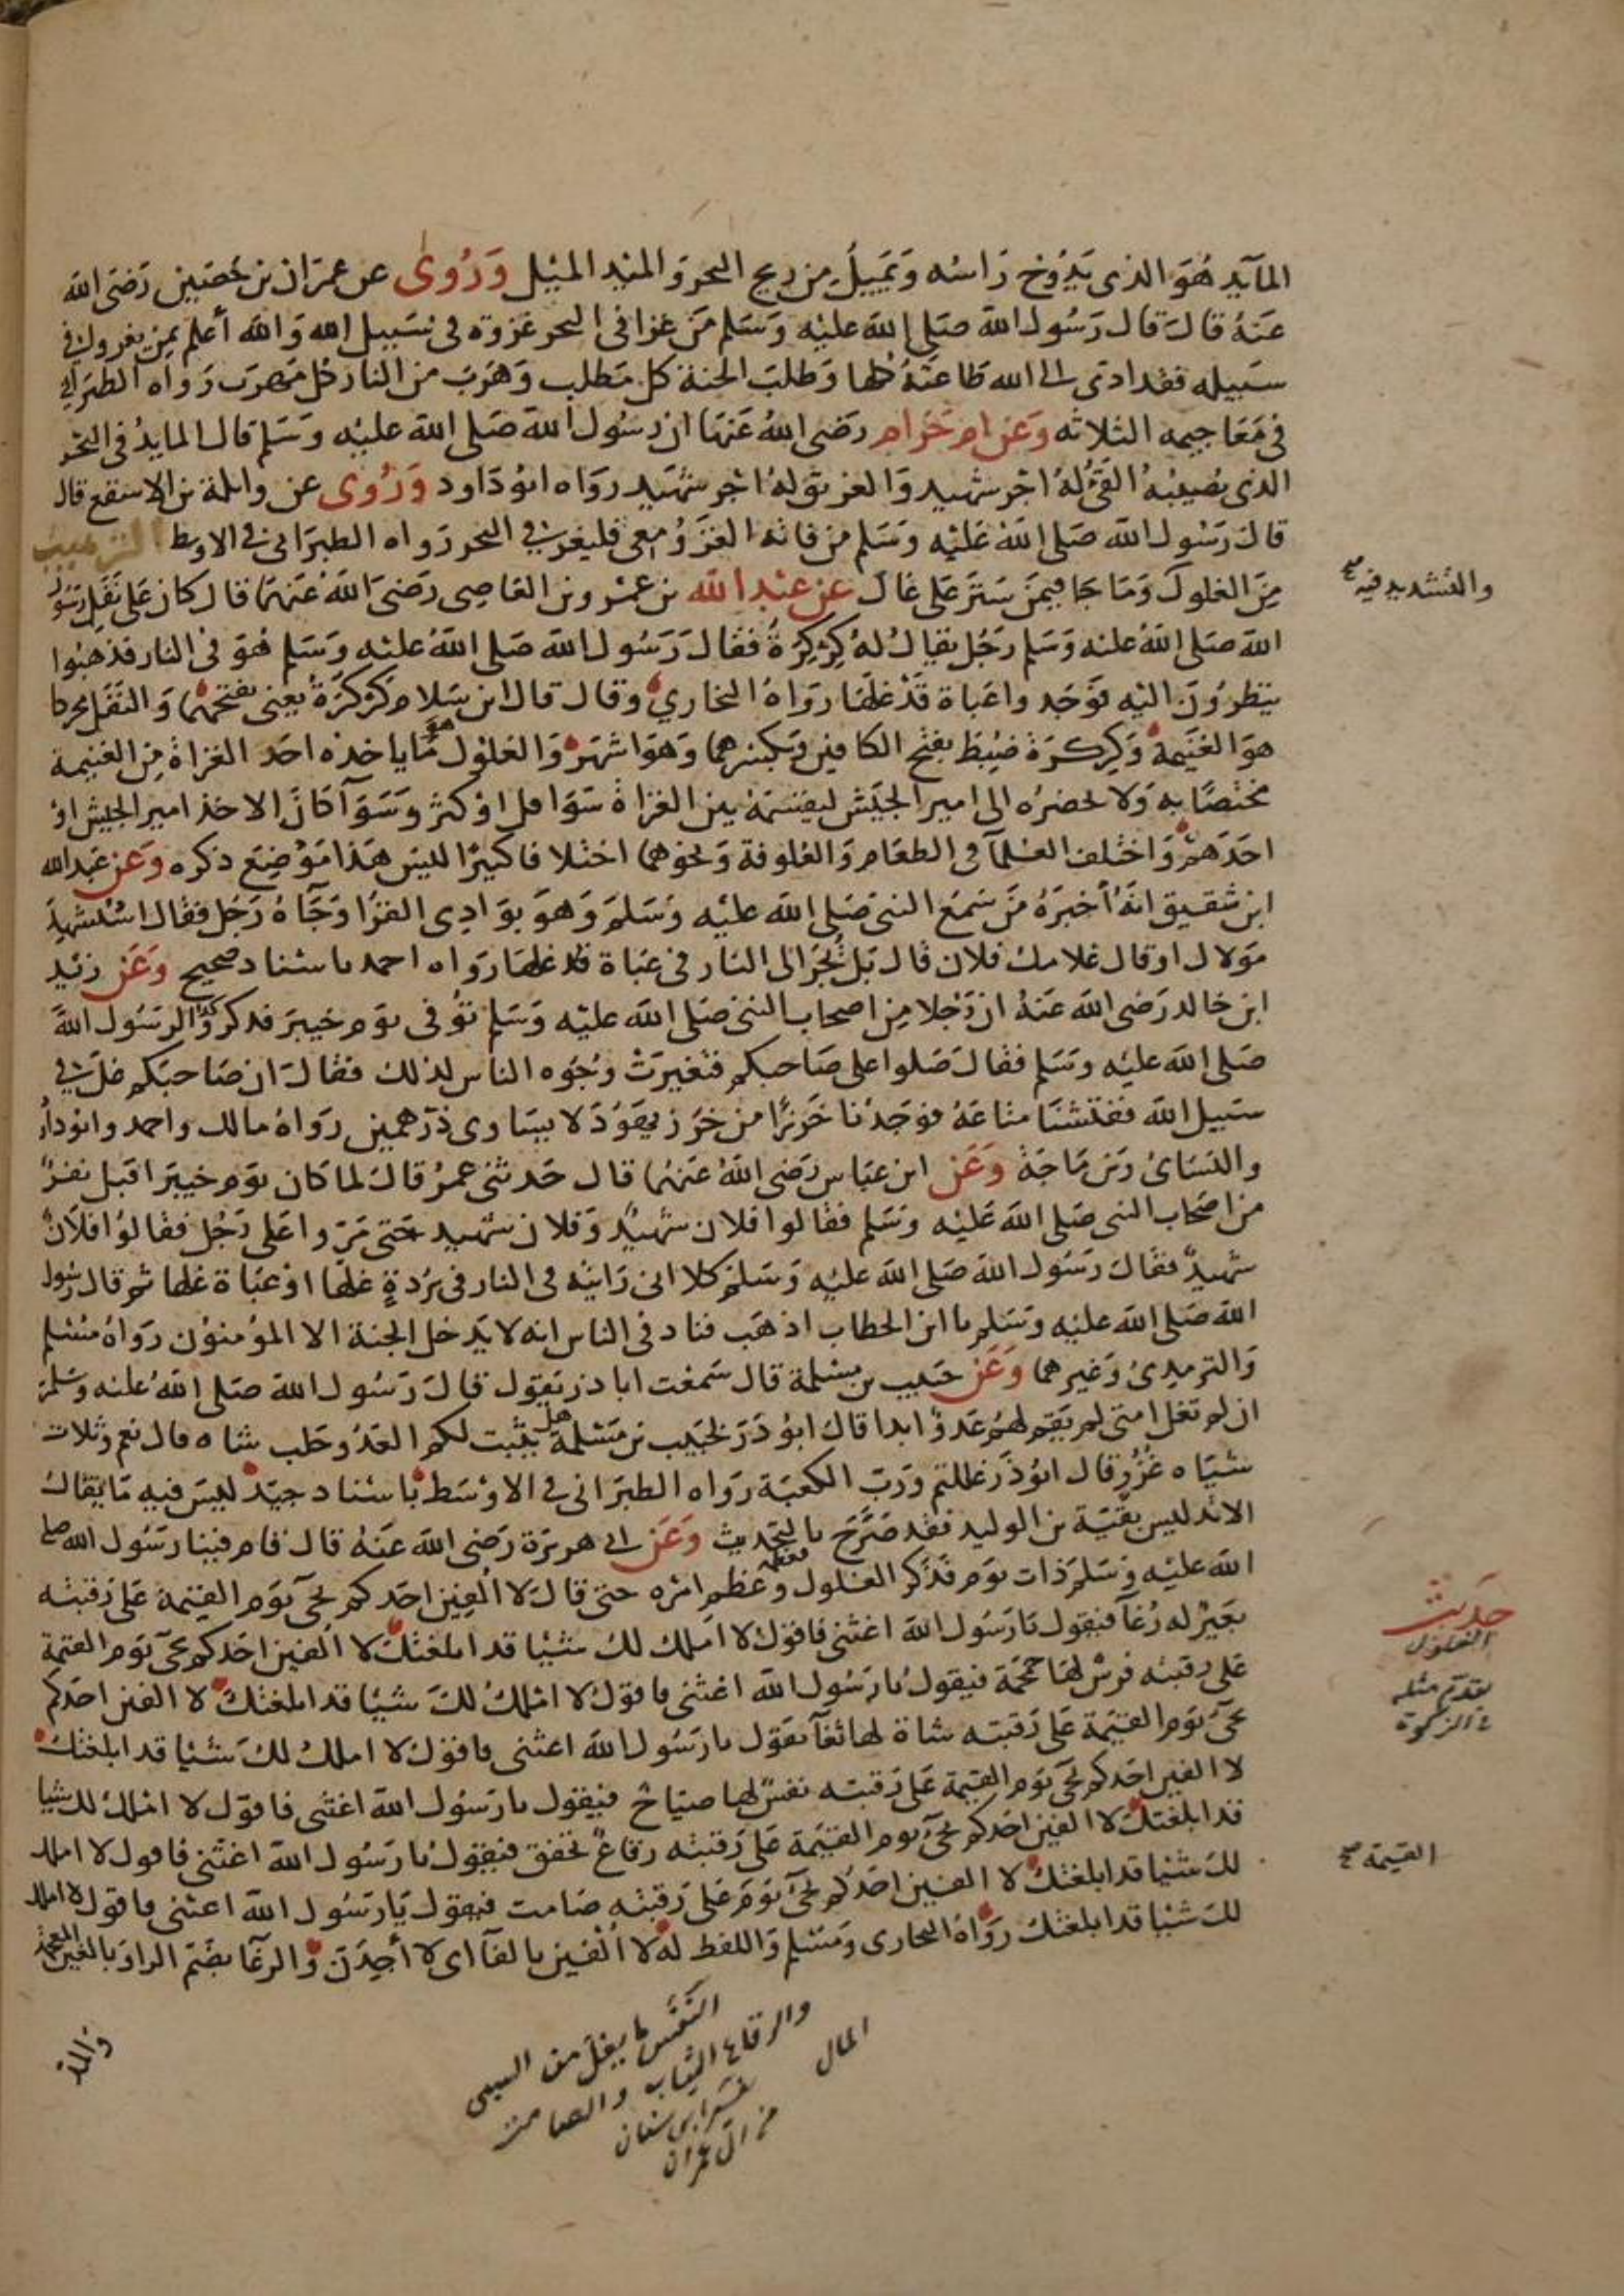 المآيد هو الذي يدوخ راسه ويميل من ريح البحر والميد الميل وروى عن عمران بن حصين رضى الله
عنه قال قال رسول الله صلى الله عليه وسلم من غزا فى البحر غزوة فى سبيل الله والله أعلم بمن يغزو فى
سبيله فقد ادى الى الله طاعته كلها وطلب الجنة كل مطلب وهرب من النار كل مهرب رواه الطبرانى
فى معاجيمه الثلاثه وعن ام حرام رضى الله عنها ان رسول الله صلى الله عليه وسلم قال المايد فى البحر
الذى يصيبه القى له اجر شهيد والغريق له اجر شهيد رواه ابو داود وروى عن واثلة بن الاسقع قال
قال رسول الله صلى الله عليه وسلم من فاته الغزو معى فليغز فى البحر رواه الطبرانى فى الاوسط الترهيب
من الغلول وما جا فيمن ستر على غال عن عبد الله بن عمرو بن العاصى رضى الله عنهما قال كان على ثقل رسول
الله صلى الله عليه وسلم رجل يقال له كركرة فقال رسول الله صلى الله عليه وسلم هو فى النار فذهبوا
ينظرون اليه فوجدوا عباة قد غلها رواه البخاري وقال قال ابن سلام كركرة يعنى بفتحهما والثقل محركا
هو الغنيمة وكركرة ضبط بفتح الكافين وبكسرهما وهو اشهر والغلول هو ما ياخذه احد الغزاة من الغنيمة
مختصا به ولا يحضره الى امير الجيش ليقسمه بين الغزاة سوا قل او كثر وسوآ كان الاخذ امير الجيش او
احدهم واختلف العلمآ فى الطعام والعلوفة ونحوهما اختلافا كبيرا ليس هذا موضع ذكره وعن عبد الله
ابن شقيق انه أخبره من سمع النبى صلى الله عليه وسلم وهو بوادى القرا وجآه رجل فقال استشهد
مولاك او قال غلامك فلان قال بل يجر الى النار فى عباة قد غلها رواه احمد باسناد صحيح وعن زيد
ابن خالد رضى الله عنه ان رجلا من اصحاب النبى صلى الله عليه وسلم توفى يوم خيبر فذكروا لرسول الله
صلى الله عليه وسلم فقال صلوا على صاحبكم فتغيرت وجوه الناس لذلك فقال ان صاحبكم غل فى
سبيل الله ففتشنا متاعه فوجدنا خرزا من خرز يهود لا يساوى درهمين رواه مالك واحمد وابو داود
والنسائ وبن ماجة وعن ابن عباس رضى الله عنهما قال حدثنى عمر قال لما كان يوم خيبر اقبل نفر
من اصحاب النبى صلى الله عليه وسلم فقالوا فلان شهيد وفلان شهيد حتى مروا على رجل فقالوا فلان
شهيد فقال رسول الله صلى الله عليه وسلم كلا انى رايته فى النار فى بردة غلها او عباة غلها ثم قال رسول
الله صلى الله عليه وسلم يا ابن الخطاب اذهب فناد فى الناس انه لا يدخل الجنة الا المؤمنون رواه مسلم
والترمذى وغيرهما وعن حبيب بن مسلمة قال سمعت ابا ذر يقول قال رسول الله صلى الله عليه وسلم
ان لم تغل امتى لم يقم لهم عدو ابدا قال ابو ذر لحبيب بن مسلمة هل يثبت لكم العدو حلب شاه قال نعم وثلاث
شياه غزر قال ابو ذر غللتم ورب الكعبة رواه الطبرانى فى الاوسط باسناد جيد ليس فيه ما يقال
الا تدليس بقية بن الوليد فقد صرح بالتحديث وعن ابى هريرة رضى الله عنه قال قام فينا رسول الله صلى
الله عليه وسلم ذات يوم فذكر الغلول فعظمه وعظم امره حتى قال لا الفين احدكم يجى يوم القيمة على رقبته
بعير له رغآ فيقول يا رسول الله اغثنى فاقول لا املك لك شيئا قد ابلغتك لا الفين احدكم يجى يوم القيمة
على رقبته فرس لها حمحمة فيقول يا رسول الله اغثنى فاقول لا املك لك شيئا قد ابلغتك لا الفين احدكم
يجى يوم القيمة على رقبته شاة لها ثغآ يقول يا رسول الله اغثنى فاقول لا املك لك شيئا قد ابلغتك
لا الفين احدكم يجى يوم القيمة على رقبته نفس لها صياح فيقول يا رسول الله اغثنى فاقول لا املك لك شيئا
قد ابلغتك لا الفين احدكم يجى يوم القيمة على رقبته رقاع تخفق فيقول يا رسول الله اغثنى فاقول لا املك
لك شيئا قد ابلغتك لا الفين احدكم يجى يوم على رقبته صامت فيقول يا رسول الله اغثنى فاقول لا املك
لك شيئا قد ابلغتك رواه البخارى ومسلم واللفظ له لا الفين بالفآ اى لا أجدن والرغآ بضم الرا وبالغين المعجمة
والتشديد فيه صح
حديث
الغلول
تقدم مثله
فى الزكوة
القيمة صح
النفس ما يغل من السبى
والرقاع الثياب والصامت
المال
من ال عمران
والمد